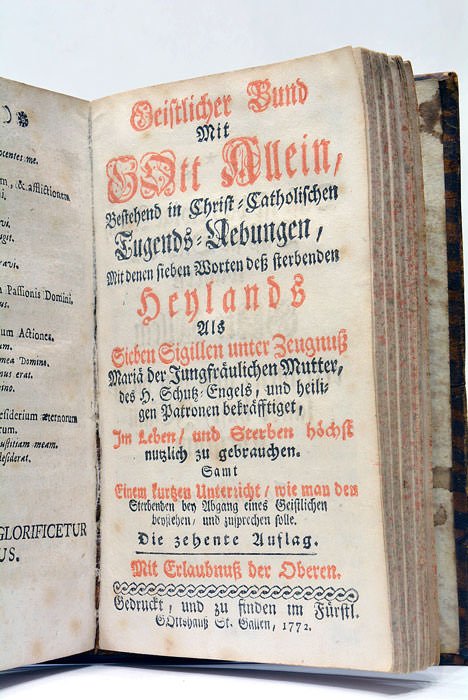 ocentes me.
m, & afflictionem
vi.
ugit.
ravi.
a Passionis Domini.
us.
um Actiones.
m.
mea Domine.
nus erat.
mino.
esiderium æternorum
rum.
ustitiam meam.
desiderat.
GLORIFICETUR
US.
Geistlicher Bund
Mit
GOtt Allein,
Bestehend in Christ-Catholischen
Tugends-Uebungen,
Mit denen sieben Worten deß sterbenden
Heylands
Als
Sieben Sigillen unter Zeugnuß
Mariä der Jungfräulichen Mutter,
des H. Schutz-Engels, und heili-
gen Patronen bekräfftiget,
Im Leben/ und Sterben höchst
nutzlich zu gebrauchen.
Samt
Einem kurtzen Unterricht/ wie man den
Sterbenden bey Abgang eines Geistlichen
beystehen/ und zusprechen solle.
Die zehente Auflag.
Mit Erlaubnuß der Oberen.
Gedruckt, und zu finden im Fürstl.
GOttshauß St. Gallen, 1772.